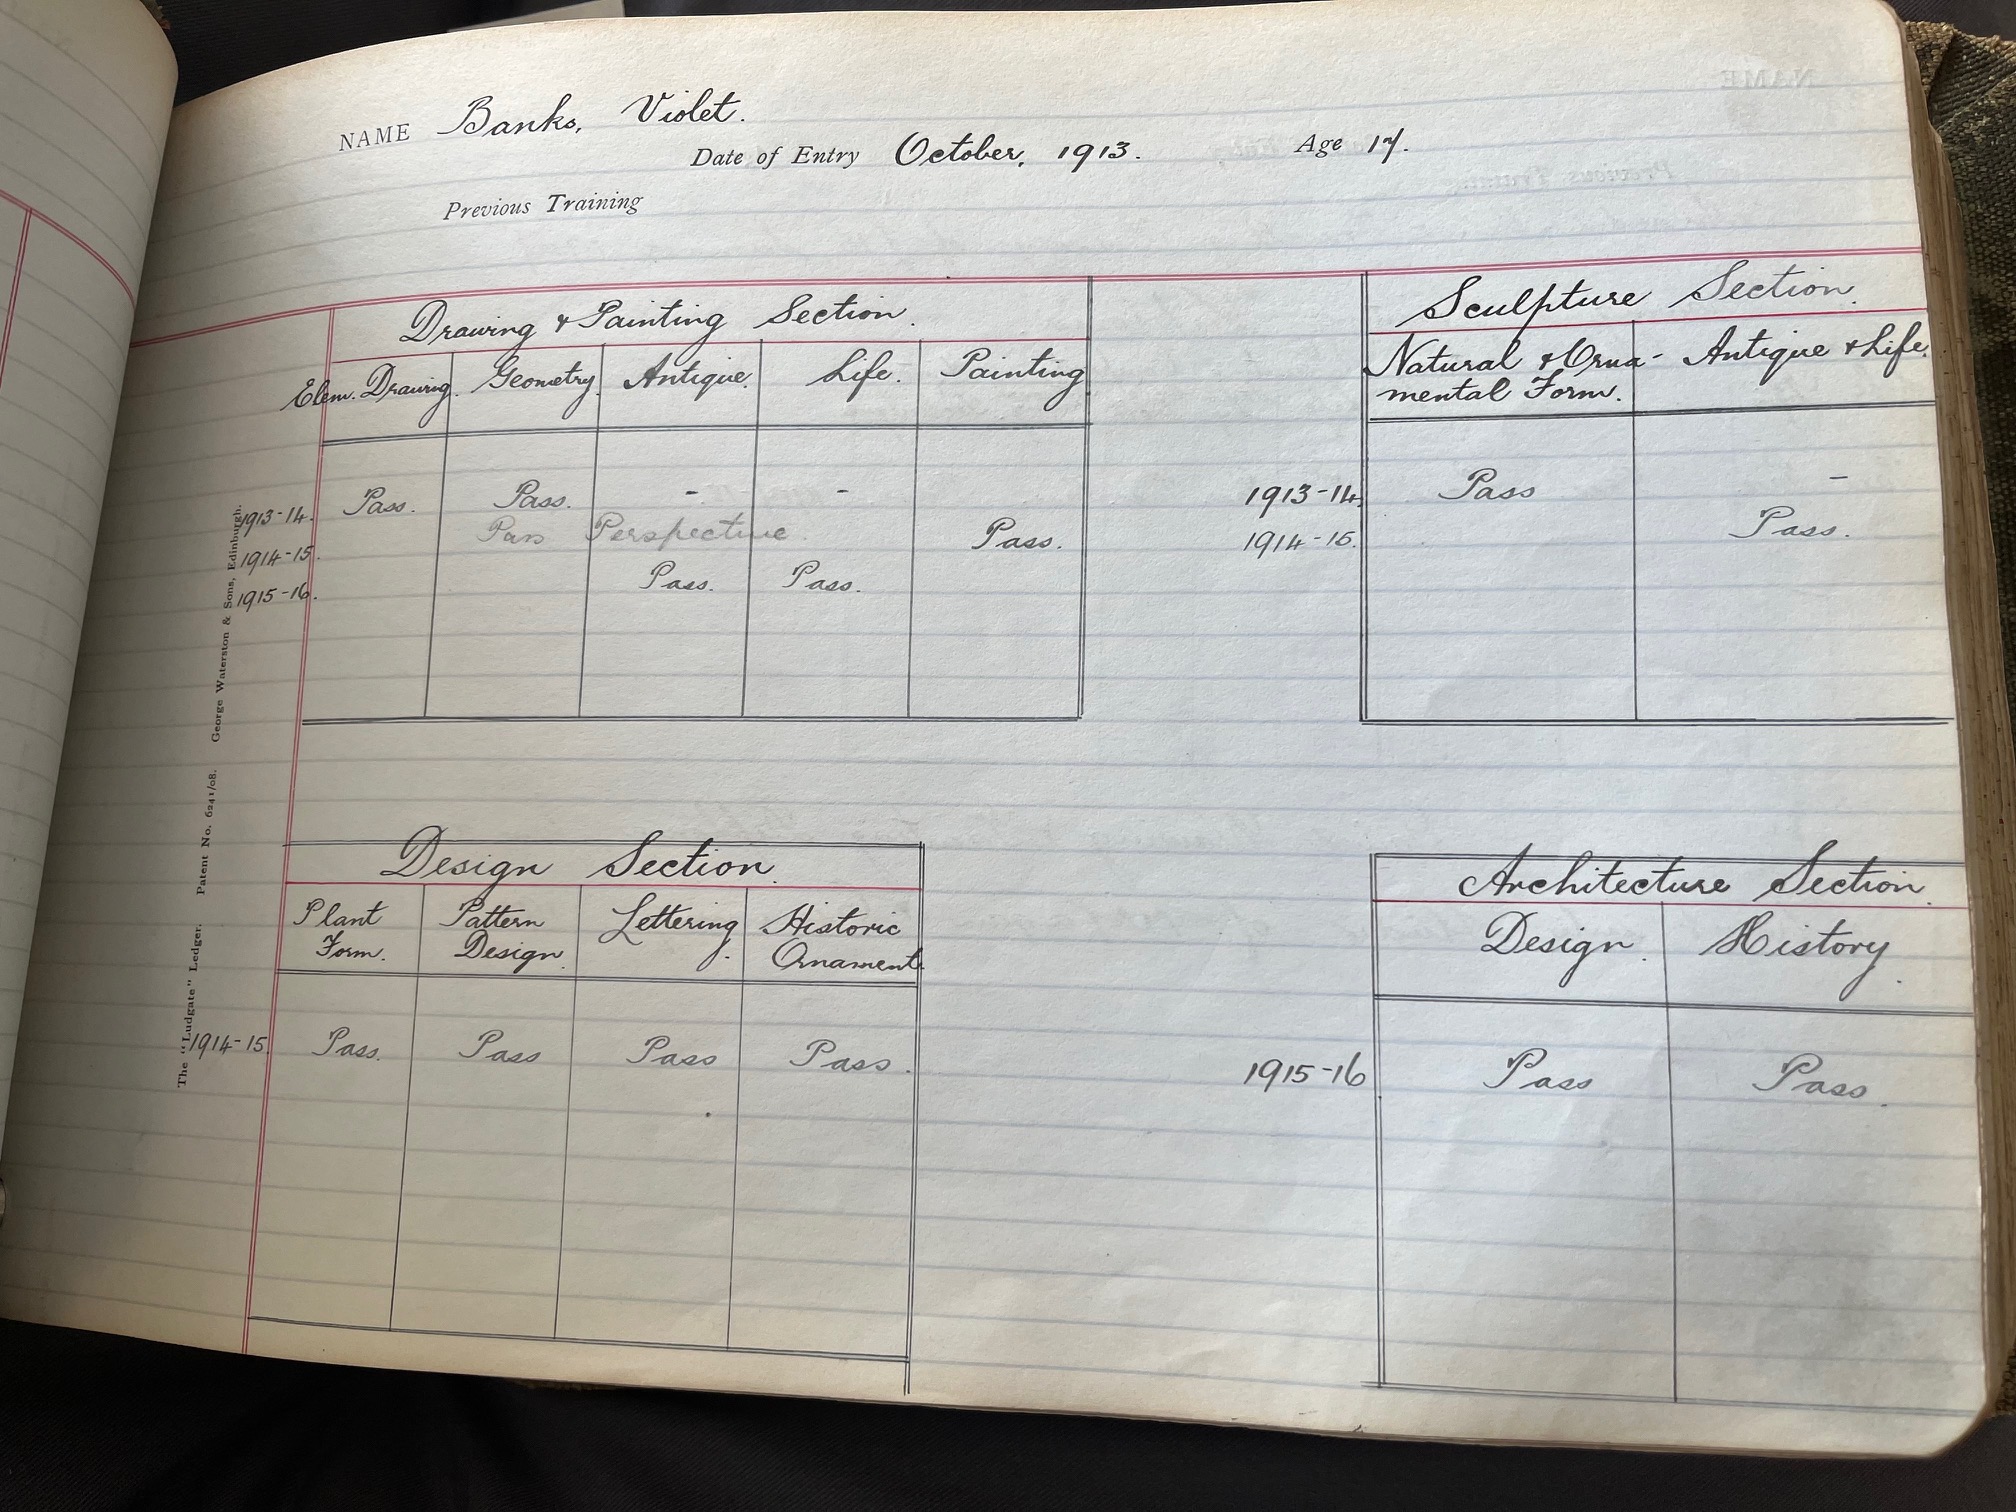 NAME Banks, Violet.
Date of Entry October, 1913. Age 17.
Previous Training
Drawing & Painting Section.
Elem. Drawing. Geometry. Antique. Life. Painting
1913-14. Pass. Pass. - -
1914-15. Pass Perspective. Pass.
1915-16. Pass. Pass.
Sculpture Section.
Natural & Orna- Antique & Life.
mental Form.
1913-14. Pass -
1914-15. Pass.
Design Section.
Plant Pattern Lettering. Historic
Form. Design. Ornament.
1914-15. Pass. Pass Pass Pass.
Architecture Section.
Design. History.
1915-16 Pass Pass.
The "Ludgate" Ledger. Patent No. 6241/08. George Waterston & Sons, Edinburgh.
NAME
Previous Training